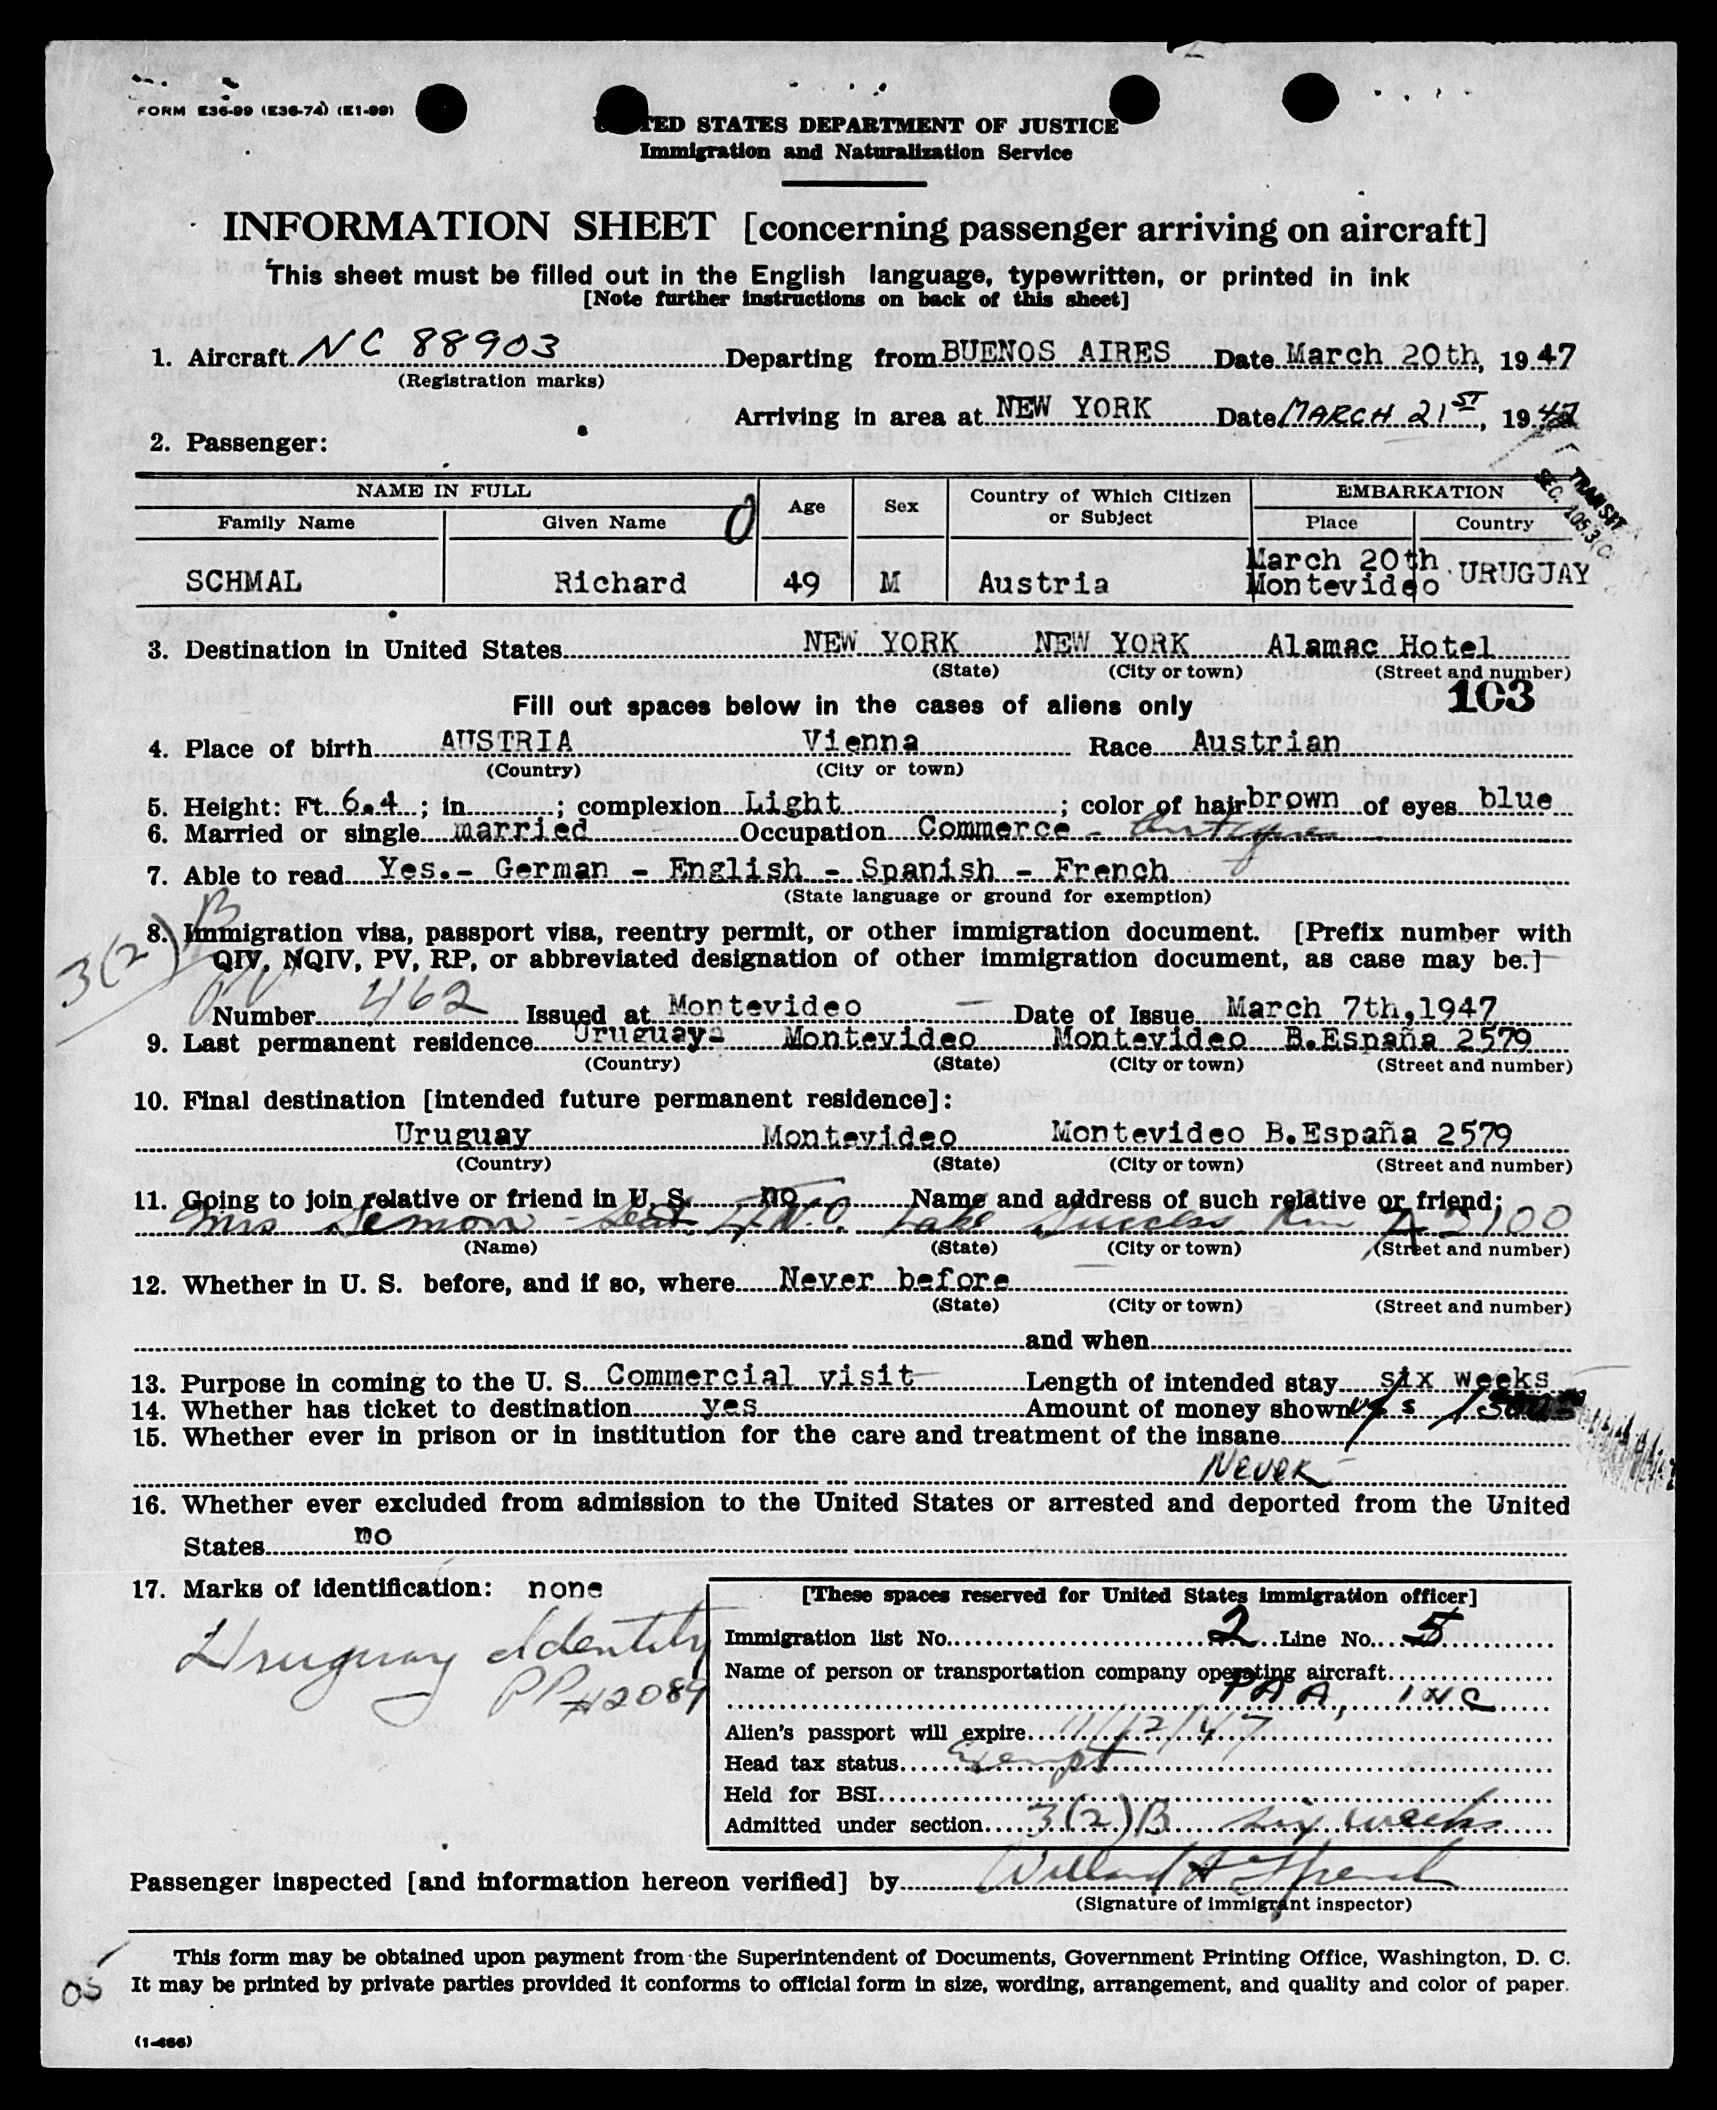 FORM E36-99 (E36-74) (E1-99)
UNITED STATES DEPARTMENT OF JUSTICE
Immigration and Naturalization Service
INFORMATION SHEET [concerning passenger arriving on aircraft]
This sheet must be filled out in the English language, typewritten, or printed in ink
[Note further instructions on back of this sheet]
1. Aircraft NC 88903 Departing from BUENOS AIRES Date March 20th, 1947
(Registration marks)
Arriving in area at NEW YORK Date MARCH 21ST, 1947
2. Passenger:
TRANSIT
SEC. 105.3(C)
NAME IN FULL Age Sex Country of Which Citizen or Subject EMBARKATION
Family Name Given Name 0 Place Country
SCHMAL Richard 49 M Austria March 20th Montevideo URUGUAY
3. Destination in United States NEW YORK NEW YORK Alamac Hotel
(State) (City or town) (Street and number)
103
Fill out spaces below in the cases of aliens only
4. Place of birth AUSTRIA Vienna Race Austrian
(Country) (City or town)
5. Height: Ft. 6.4 ; in. ; complexion Light ; color of hair brown of eyes blue
6. Married or single married Occupation Commerce -
7. Able to read Yes.- German - English - Spanish - French
(State language or ground for exemption)
3(2)B
8. Immigration visa, passport visa, reentry permit, or other immigration document. [Prefix number with
QIV, NQIV, PV, RP, or abbreviated designation of other immigration document, as case may be.]
PV
Number 462 Issued at Montevideo Date of Issue March 7th,1947
9. Last permanent residence Uruguay- Montevideo Montevideo B.España 2579
(Country) (State) (City or town) (Street and number)
10. Final destination [intended future permanent residence]:
Uruguay Montevideo Montevideo B.España 2579
(Country) (State) (City or town) (Street and number)
11. Going to join relative or friend in U. S. no Name and address of such relative or friend;
Mrs Lake Success Rm A 2100
(Name) (State) (City or town) (Street and number)
12. Whether in U. S. before, and if so, where Never before
(State) (City or town) (Street and number)
and when
13. Purpose in coming to the U. S. Commercial visit Length of intended stay six weeks
14. Whether has ticket to destination yes Amount of money shown
15. Whether ever in prison or in institution for the care and treatment of the insane
Never
16. Whether ever excluded from admission to the United States or arrested and deported from the United
States no
17. Marks of identification: none
Uruguay Identity
PP #12089
[These spaces reserved for United States immigration officer]
Immigration list No. 2 Line No. 5
Name of person or transportation company operating aircraft
PAA, INC
Alien's passport will expire 11/12/47
Head tax status Exempt
Held for BSI
Admitted under section 3(2)B six weeks
Passenger inspected [and information hereon verified] by
(Signature of immigrant inspector)
This form may be obtained upon payment from the Superintendent of Documents, Government Printing Office, Washington, D. C.
It may be printed by private parties provided it conforms to official form in size, wording, arrangement, and quality and color of paper.
05
(1-466)